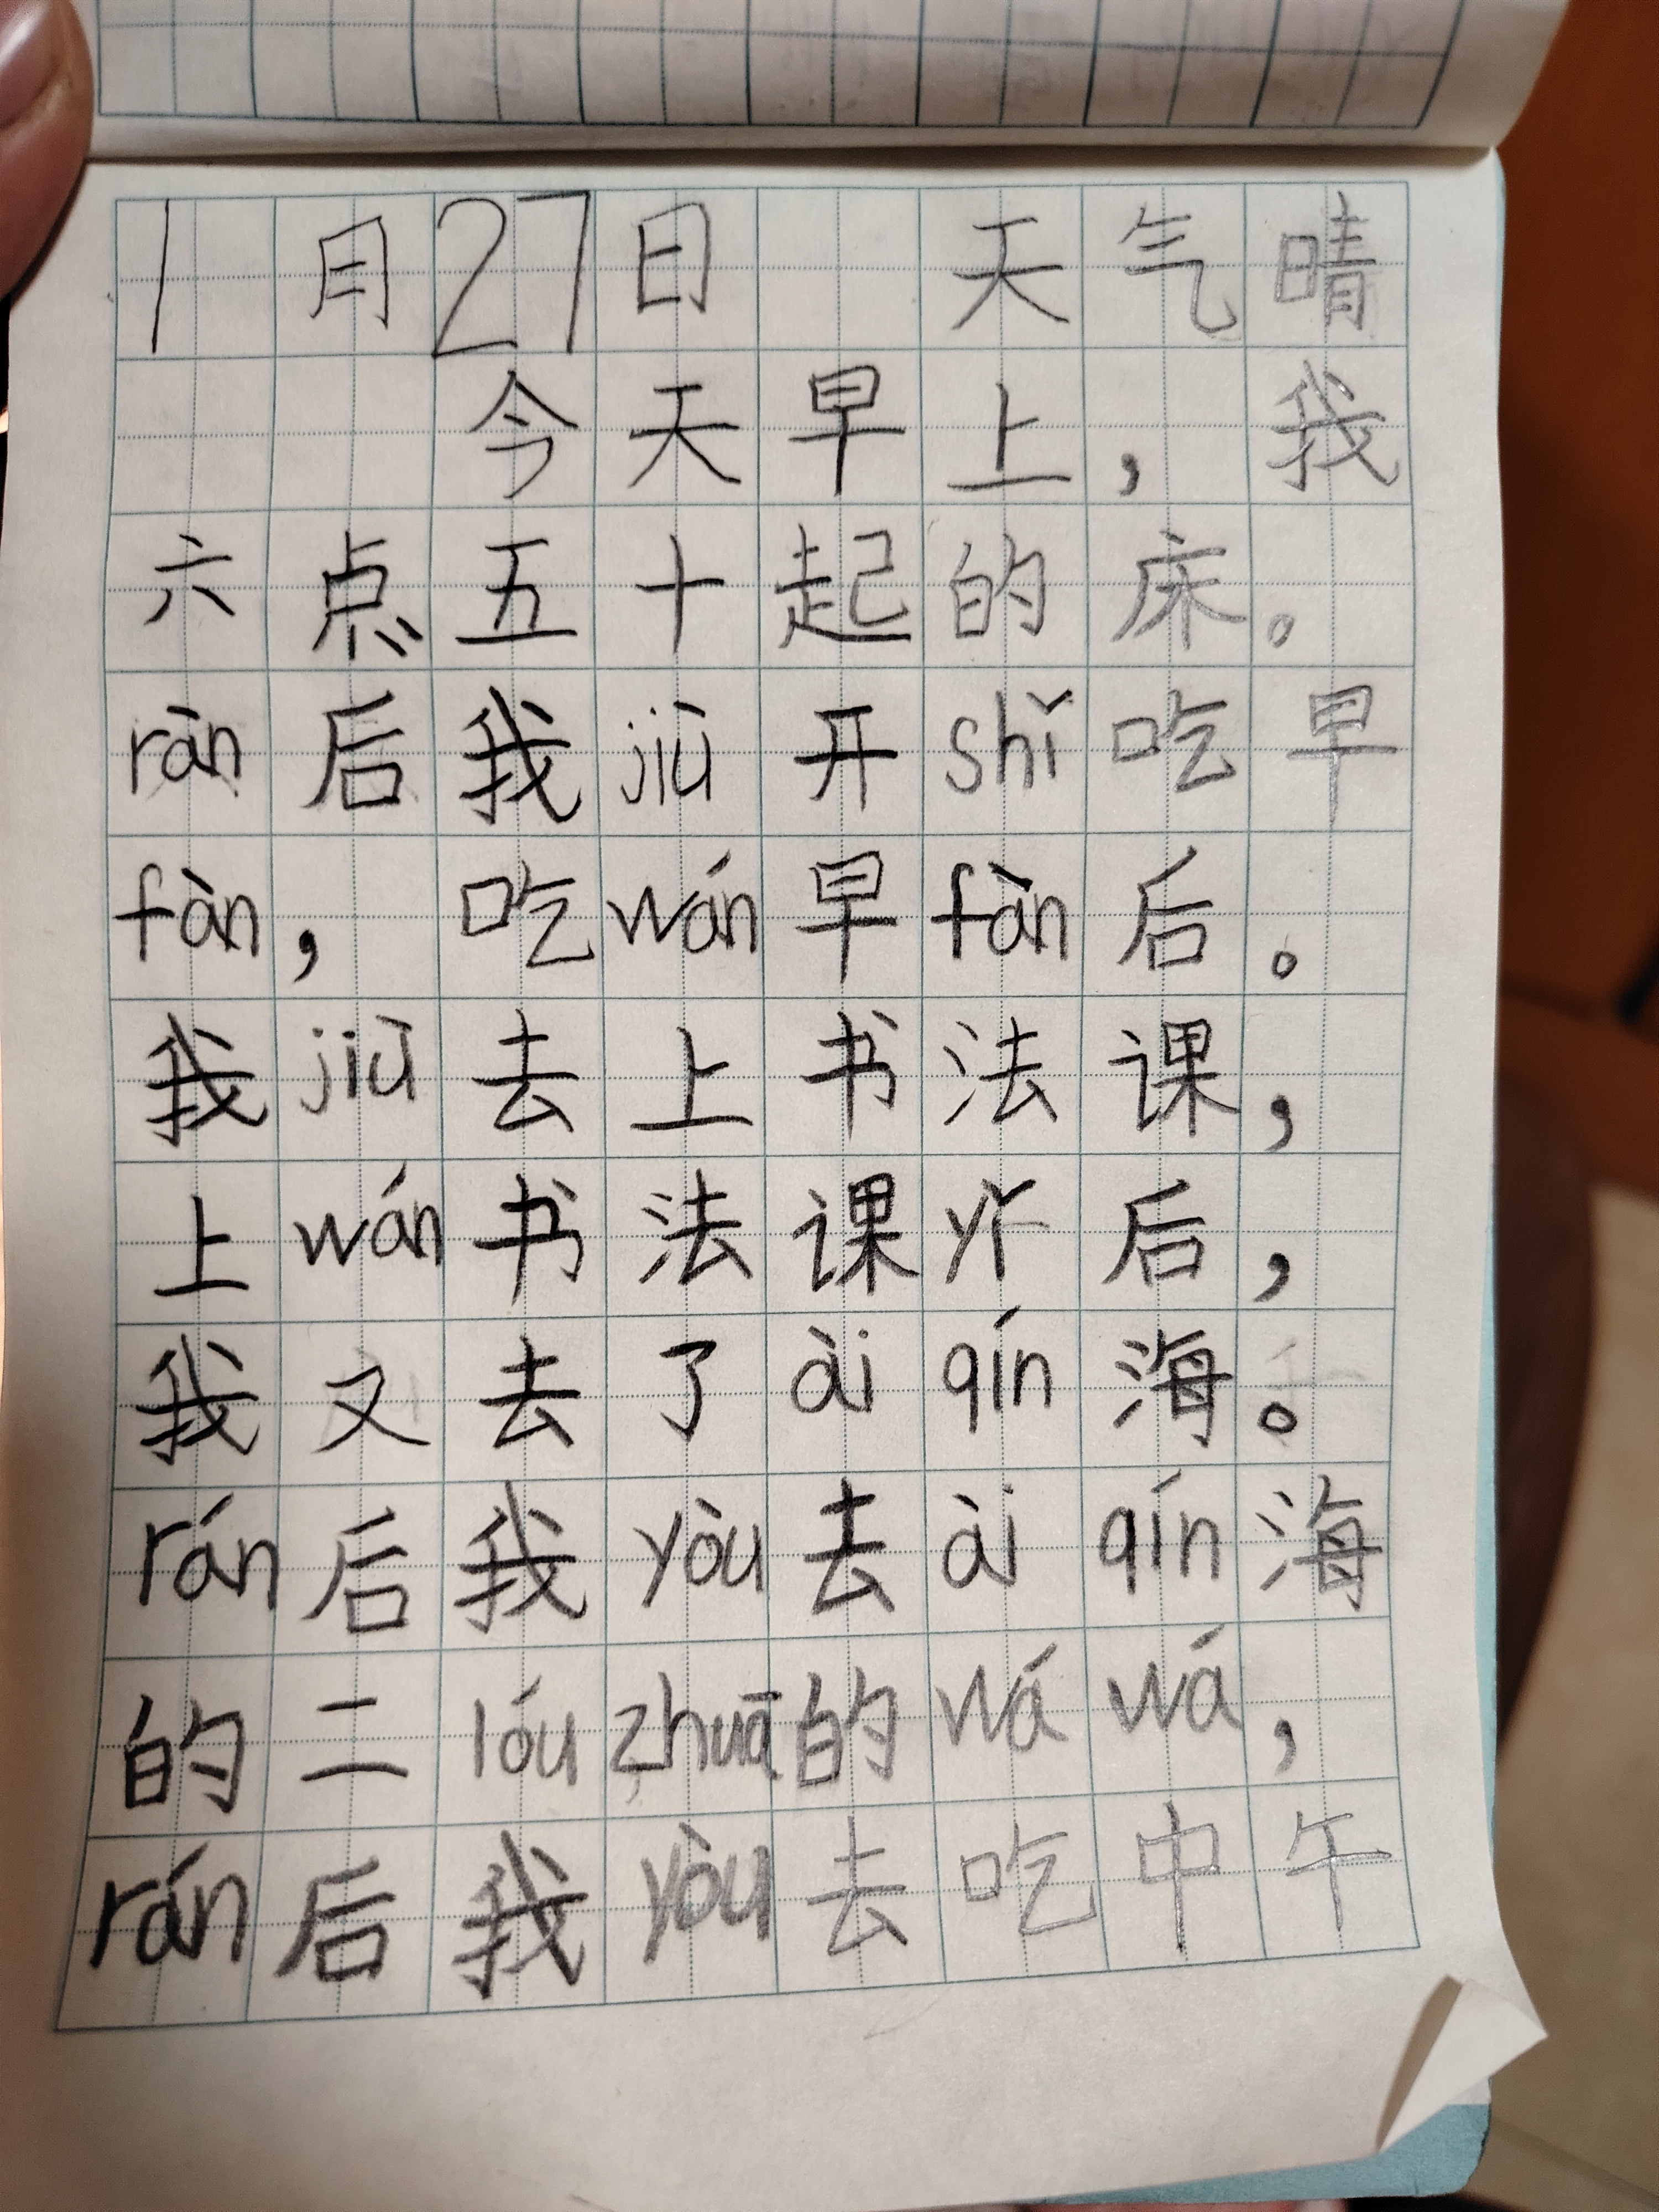 1月27日 天气晴
今天早上，我
六点五十起的床。
rān后我jiù开shǐ吃早
fàn，吃wán早fàn后。
我jiù去上书法课，
上wán书法课yǐ后，
我又去了ài qín海。
rán后我yòu去ài qín海
的二lóu zhuā的wá wá，
rán后我yòu去吃中午